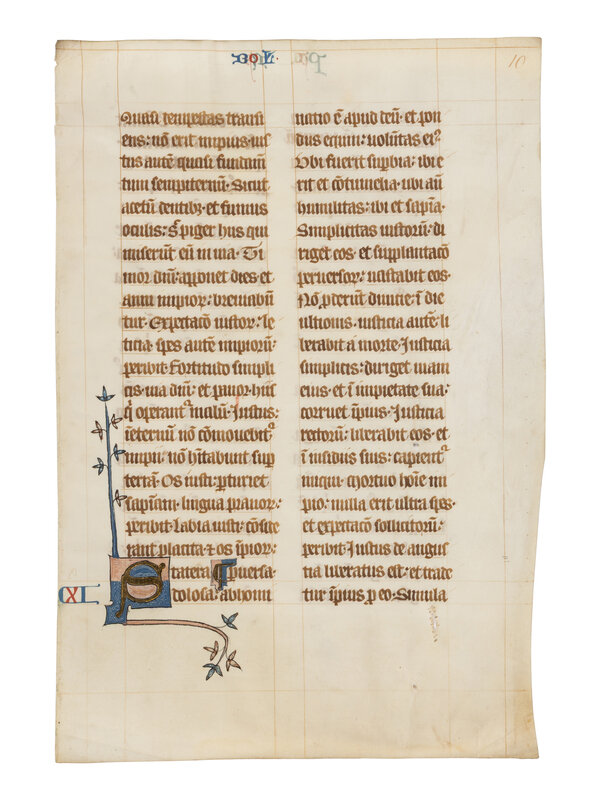 Loꝝ
10
Quasi tempestas transi
ens: nō erit impius. ius
tus autē quasi fundam̄
tum sempiternū. Sicut
acetū dentibꝫ et fumus
oculis: s̄ piget hiis qui
miserūt eū in uia. Ti
mor dn̄i: apponet dies et
anni impioꝝ: breuiabūt
tur. Expectacō iustoꝝ: le
ticia. spes autē impiorū:
peribit. Fortitudo simpli
cis. uia dn̄i: et pauor. hiis
q̄ operant᷑ malū. Justus:
ī eternū nō cōmouebit᷑
impii: nō hītabunt sup̄
terrā. Os iusti: p̱turiet
sapiām. lingua prauoꝝ:
p̱eribit. Labia iusti: cōside
rant placita. ⁊ os īpioꝝ:
XI
Statera p̱uersa.
dolosa: abhomi
natio ē apud deū. et pon
dus equm: uolūtas ei᷒.
Vbi fuerit sup̱bia: ibi e
rit et cōtumelia. ubi aū
humilitas: ibi et sapīa.
Simplicitas iustorū: di
riget eos. et supplantacō
p̱eruersoꝝ: uastabit eos.
Nō p̱derunt diuicie: ī die
ultionis. iusticia autē: li
berabit a morte. Justicia
simplicis: diriget uiam
eius. et ī impietate sua:
corruet īpius. Justicia
rectorū: liberabit eos. et
ī insidiis suis: capient᷑
iniqui. Mortuo hoīe im
pio: nulla erit ultra spes.
et expectacō solicitorū:
p̱eribit. Justus de angus
tia liberatus est: et trade
tur īpius p̱ eo. Simula